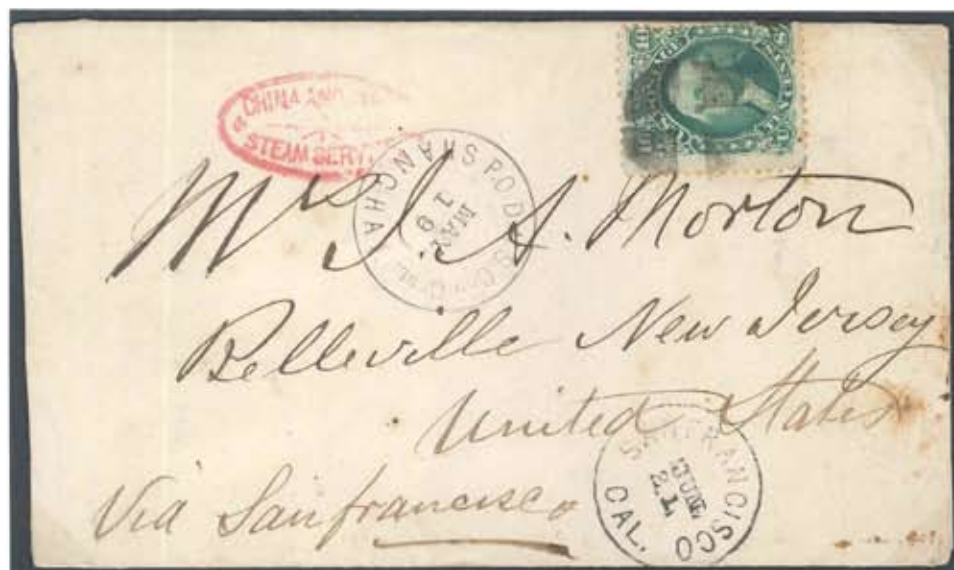 CHINA AND
STEAM SERV
U.S. POSTAGE
SHANGHAI
MAY
19
Mrs J. A. Morton
Belleville New Jersey
United States
Via Sanfrancisco
SAN FRANCISCO
JUNE
21
CAL.